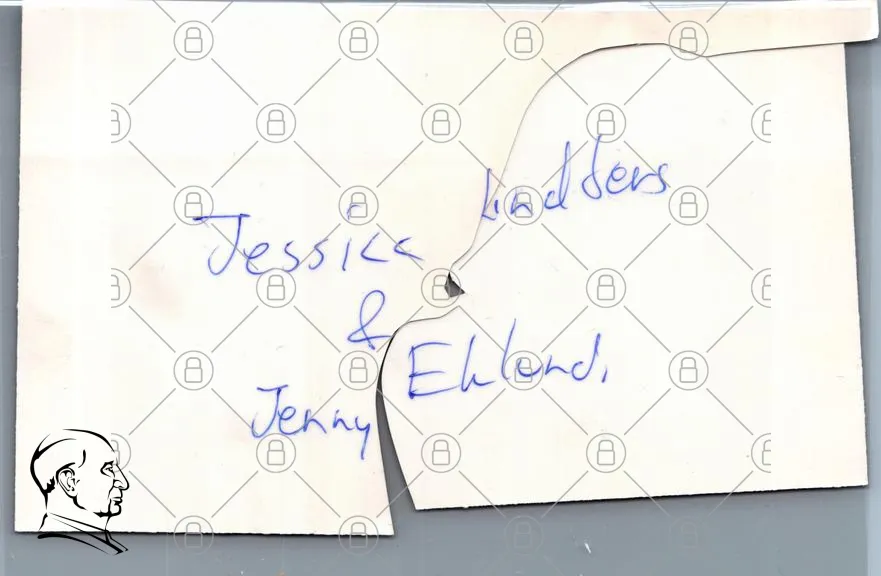 Jessica Lindberg
&
Jenny Eklund.